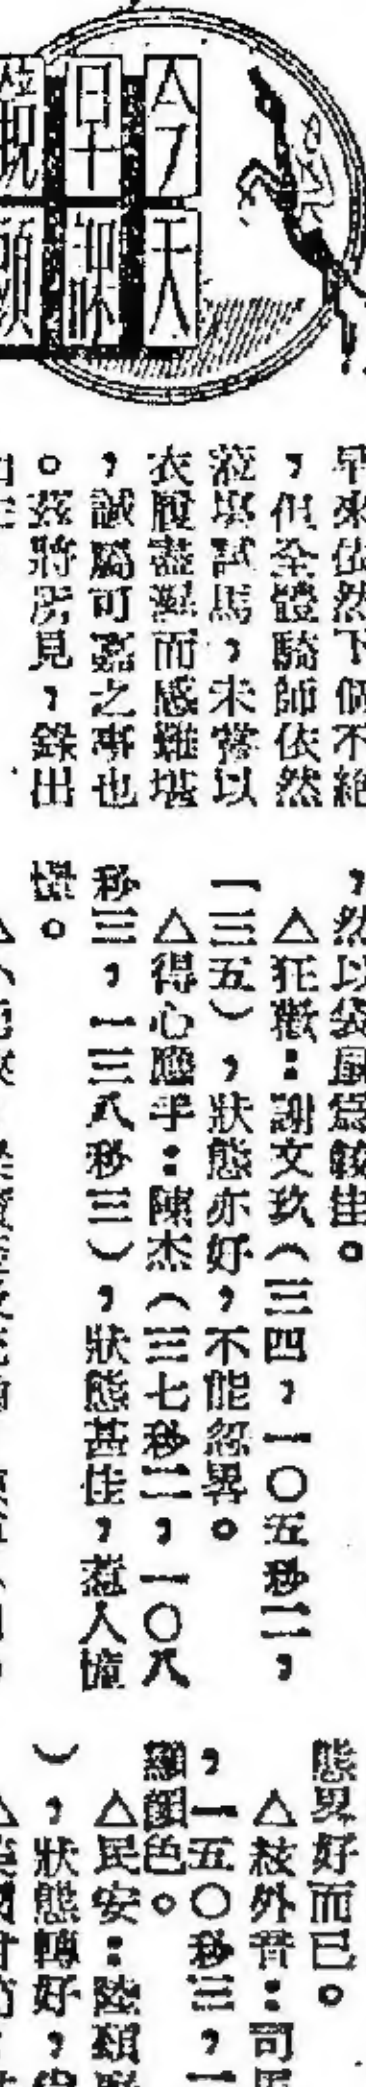 今天
早課
鏡頭
早來依然下個不絕
，但全體騎師依然
蒞塲試馬，未嘗以
衣履盡濕而感難堪
，誠屬可嘉之事也
。茲將所見，錄出
，然以袋鼠為較佳。
△狂歡：謝文玖（三四，一〇五秒二，
一三五），狀態亦好，不能忽畧。
△得心應手：陳杰（三七秒二，一〇八
秒三，一三八秒三），狀態甚佳，惹人憧
憬。
態畧好而已。
△絃外音：司馬
，一五〇秒三，一
顏色。
△民安：陸
），狀態轉好，